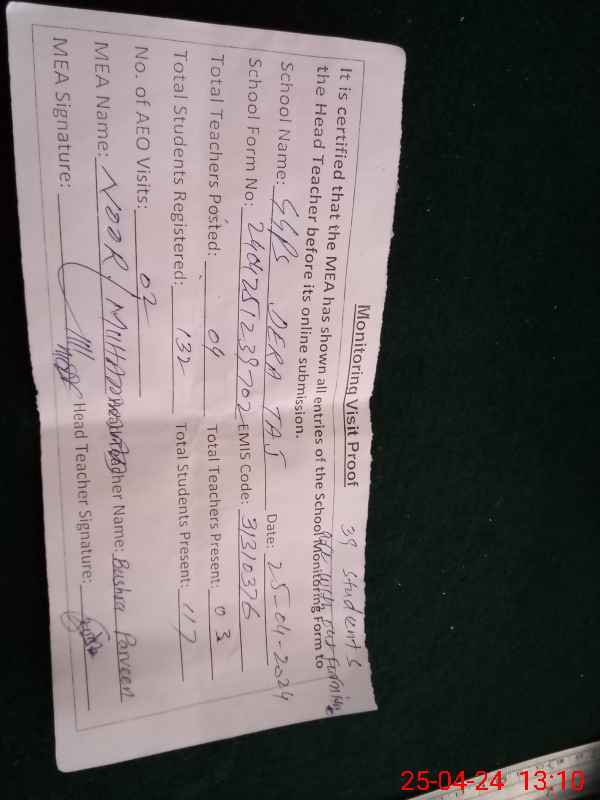 Monitoring Visit Proof 39 students
with out furniture
It is certified that the MEA has shown all entries of the School Monitoring Form to
the Head Teacher before its online submission.
School Name: GGPS DERA TAJ Date: 25-04-2024
School Form No: EMIS Code: 31310376
Total Teachers Posted: 04 Total Teachers Present: 03
Total Students Registered: 132 Total Students Present: 117
No. of AEO Visits: 02
MEA Name: NOOR MUHAMMAD Head Teacher Name: Bushra Parveen
MEA Signature: Head Teacher Signature:
25-04-24 13:10